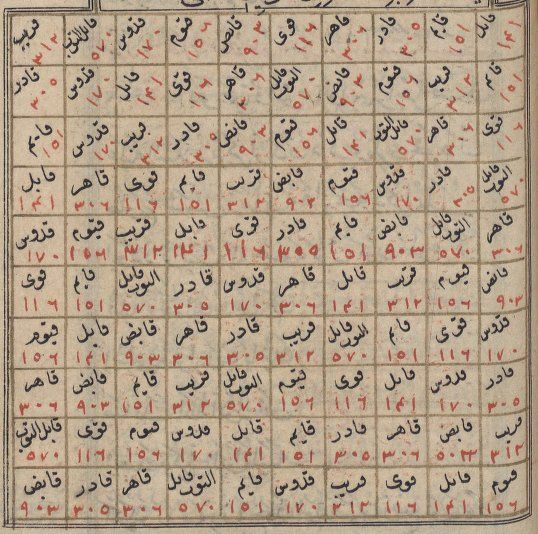 قايل قايم قادر قاهر قوي قابض قيوم قدوس قابل التوب قريب
١٤١ ١٥١ ٣٠٥ ٣٠٦ ١١٦ ٩٠٣ ١٥٦ ١٧٠ ٥٧٠ ٣١٢
قايم قريب قيوم قابض قابل التوب قاهر قوي قايل قدوس قادر
١٥١ ٣١٢ ١٥٦ ٩٠٣ ٥٧٠ ٣٠٦ ١١٦ ١٤١ ١٧٠ ٣٠٥
قوي قاهر قابل التوب قايل قيوم قابض قادر قريب قدوس قايم
١١٦ ٣٠٦ ٥٧٠ ١٤١ ١٥٦ ٩٠٣ ٣٠٥ ٣١٢ ١٧٠ ١٥١
قابل التوب قادر قدوس قيوم قابض قريب قايم قوي قاهر قايل
٥٧٠ ٣٠٥ ١٧٠ ١٥٦ ٩٠٣ ٣١٢ ١٥١ ١١٦ ٣٠٦ ١٤١
قاهر قابل التوب قابض قايم قادر قوي قايل قريب قيوم قدوس
٣٠٦ ٥٧٠ ٩٠٣ ١٥١ ٣٥٥ ١١٦ ١٤١ ٣١٢ ١٥٦ ١٧٠
قابض قيوم قريب قايل قاهر قدوس قادر قابل التوب قايم قوي
٩٠٣ ١٥٦ ٣١٢ ١٤١ ٣٠٦ ١٧٠ ٣٠٥ ٥٧٠ ١٥١ ١١٦
قدوس قوي قايم قابل التوب قريب قادر قاهر قابض قايل قيوم
١٧٠ ١١٦ ١٥١ ٥٧٠ ٣١٢ ٣٠٥ ٣٠٦ ٩٠٣ ١٤١ ١٥٦
قادر قدوس قايل قوي قيوم قابل التوب قريب قايم قابض قاهر
٣٠٥ ١٧٠ ١٤١ ١١٦ ١٥٦ ٥٧٠ ٣١٢ ١٥١ ٩٠٣ ٣٠٦
قريب قابض قاهر قادر قايم قايل قدوس قيوم قوي قابل التوب
٣١٢ ٣٠٦ ٣٠٥ ١٥١ ١٤١ ١٧٠ ١٥٦ ١١٦ ٥٧٠
قيوم قايل قوي قريب قدوس قايم قابل التوب قاهر قادر قابض
١٥٦ ١٤١ ١١٦ ٣١٢ ١٧٠ ١٥١ ٥٧٠ ٣٠٦ ٣٠٥ ٩٠٣